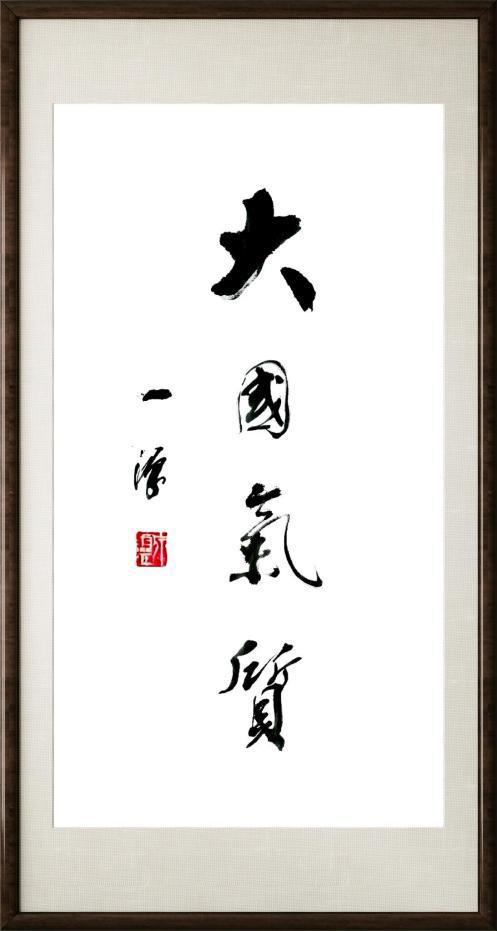 大國氣質
一源